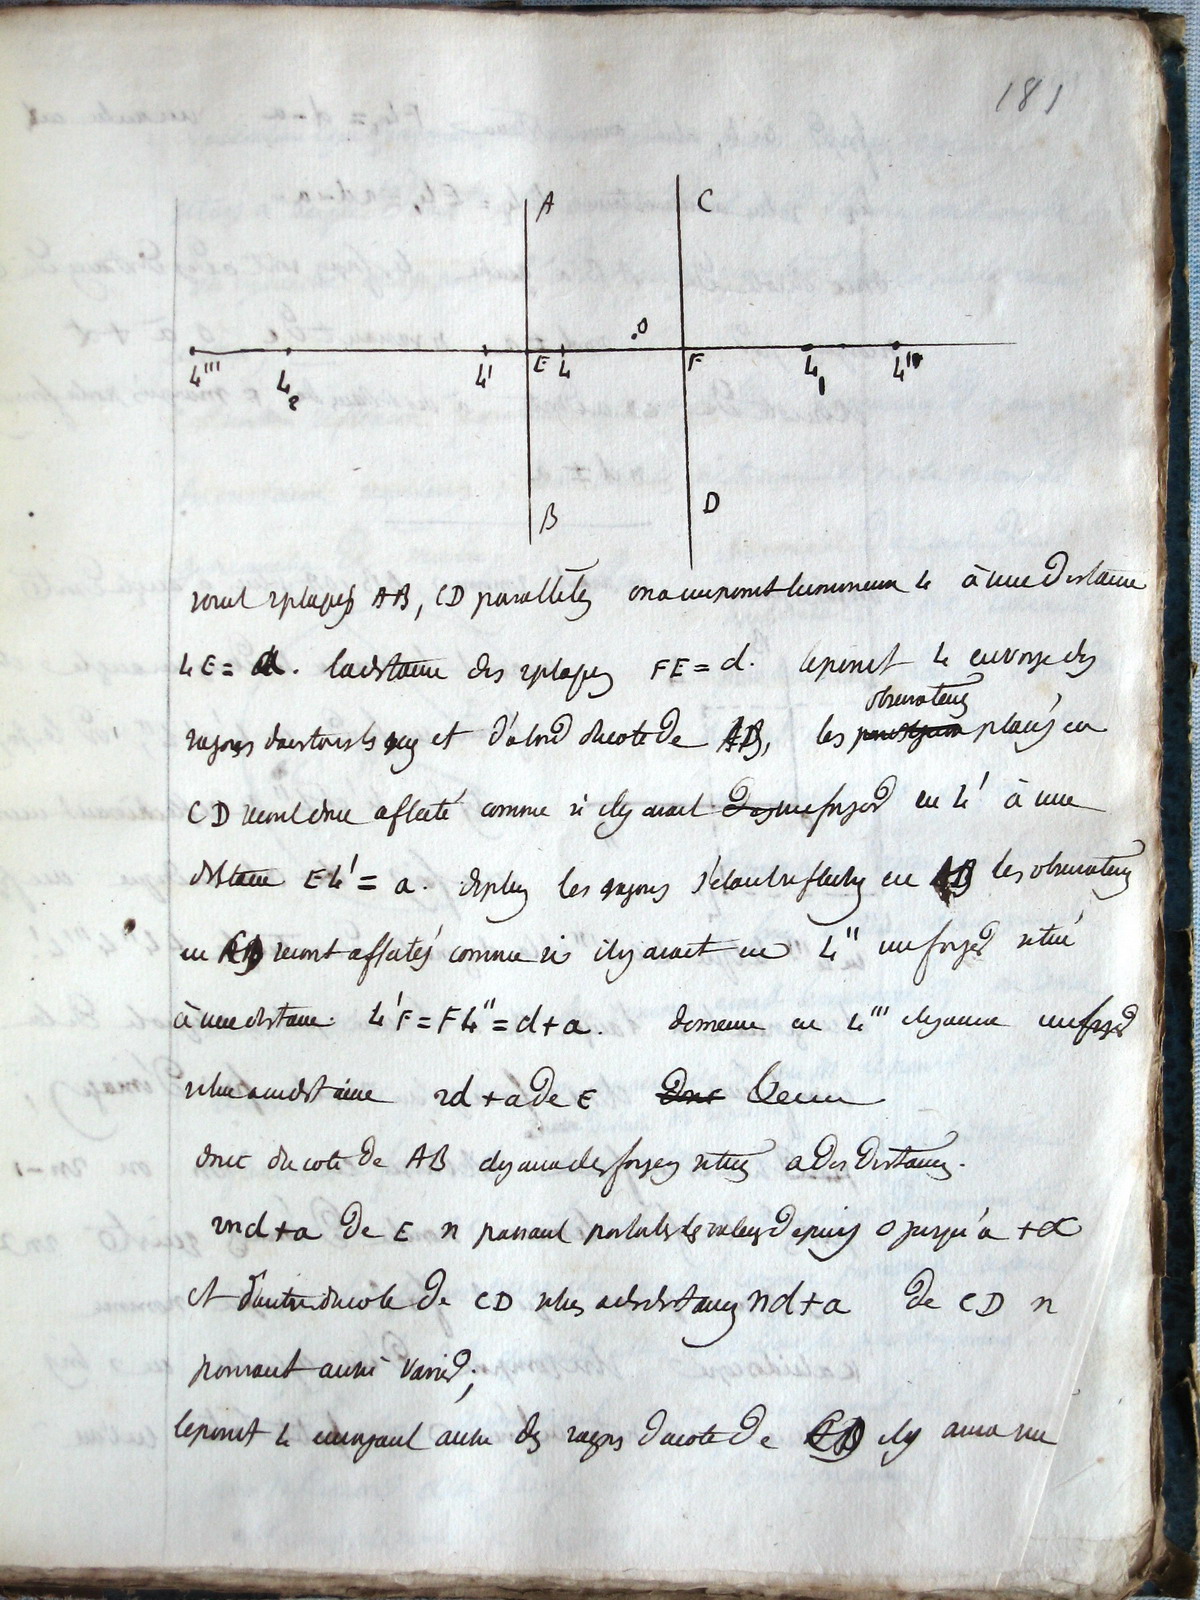 181
A C
O
L''' L2 L' E L F L1 L''
B D
soient 2 plaques AB, CD parallèles on a un point lumineux L à une distance
LE = a. la distance des 2 plaques FE = d. le point L envoye des
observateurs
rayons dans tous les sens et d'abord du coté de AB, les placés en
CD seront donc affecté comme si il y avait un foyer en L' à une
distance EL' = a. de plus les rayons s'étant réflechis en AB les observateurs
en seront affectés comme si il y avait en L'' un foyer situé
à une distance L'F = FL'' = d+a. de meme en L''' il y aura un foyer
situé a une distance 2d+a de E
donc du coté de AB il y aura des foyers situés a des distances.
2nd+a de E n passant par toutes les valeurs depuis 0 jusqu'a +∞
et d'autres du cote de CD situés a des distances nd+a de CD n
pouvant aussi varier;
le point L envoyant aussi des rayons du coté de CD il y aura un